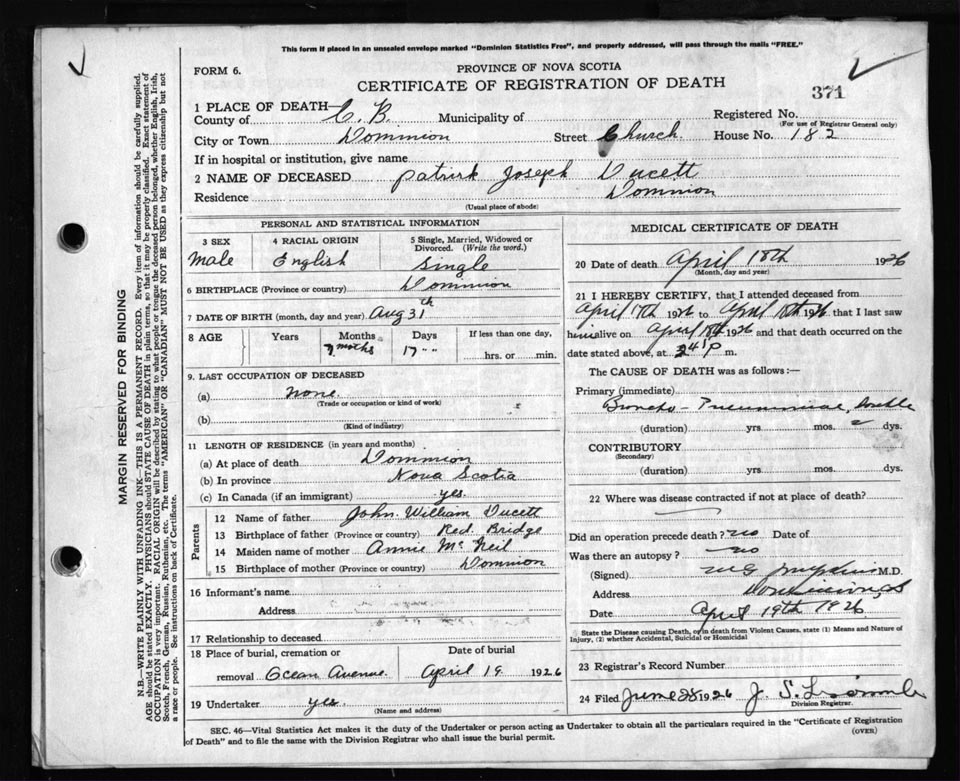 This form if placed in an unsealed envelope marked "Dominion Statistics Free", and properly addressed, will pass through the mails "FREE."
FORM 6.
PROVINCE OF NOVA SCOTIA
CERTIFICATE OF REGISTRATION OF DEATH
371
1 PLACE OF DEATH—
County of C. B. Municipality of Registered No.
(For use of Registrar General only)
City or Town Dominion Street Church House No. 182
If in hospital or institution, give name
2 NAME OF DECEASED Patrick Joseph Ducett
Residence Dominion
(Usual place of abode)
PERSONAL AND STATISTICAL INFORMATION
3 SEX 4 RACIAL ORIGIN 5 Single, Married, Widowed or Divorced. (Write the word.)
Male English Single
6 BIRTHPLACE (Province or country) Dominion
7 DATE OF BIRTH (month, day and year) Aug 31th
8 AGE Years Months Days If less than one day,
7 months 17 hrs. or min.
9. LAST OCCUPATION OF DECEASED
(a) None
(Trade or occupation or kind of work)
(b)
(Kind of industry)
11 LENGTH OF RESIDENCE (in years and months)
(a) At place of death Dominion
(b) In province Nova Scotia
(c) In Canada (if an immigrant) yes.
Parents
12 Name of father John William Ducett
13 Birthplace of father (Province or country) Red. Bridge
14 Maiden name of mother Annie McNeil
15 Birthplace of mother (Province or country) Dominion
16 Informant's name
Address
17 Relationship to deceased
18 Place of burial, cremation or removal Ocean Avenue Date of burial April 19 1926
19 Undertaker yes.
(Name and address)
MEDICAL CERTIFICATE OF DEATH
20 Date of death April 18th 1926
(Month, day and year)
21 I HEREBY CERTIFY, that I attended deceased from
April 17th 1926 to April 18th 1926 that I last saw
him alive on April 18th 1926 and that death occurred on
date stated above, at p m.
The CAUSE OF DEATH was as follows:—
Primary (immediate)
Broncho-Pneumoniae, Double
(duration) yrs. mos. dys.
CONTRIBUTORY
(Secondary)
(duration) yrs. mos. dys.
22 Where was disease contracted if not at place of death?
Did an operation precede death? no Date of
Was there an autopsy? no
(Signed) M.D.
Address
Date April 19th 1926
State the Disease causing Death, or in death from Violent Causes, state (1) Means and Nature of Injury, (2) whether Accidental, Suicidal or Homicidal
23 Registrar's Record Number
24 Filed June 28 1926 J. S.
Division Registrar.
SEC. 46—Vital Statistics Act makes it the duty of the Undertaker or person acting as Undertaker to obtain all the particulars required in the "Certificate of Registration
of Death" and to file the same with the Division Registrar who shall issue the burial permit.
(OVER)
MARGIN RESERVED FOR BINDING
N.B.—WRITE PLAINLY WITH UNFADING INK—THIS IS A PERMANENT RECORD. Every item of information should be carefully supplied.
AGE should be stated EXACTLY. PHYSICIANS should STATE CAUSE OF DEATH in plain terms, so that it may be properly classified. Exact statement of
OCCUPATION is very important. RACIAL ORIGIN will be described by stating to what people or tongue the deceased person belonged, whether English, Irish,
Scotch, French, German, Russian, Ruthenian, etc. The terms "AMERICAN" or "CANADIAN" MUST NOT BE USED as they express citizenship but not
a race or people. See instructions on back of Certificate.